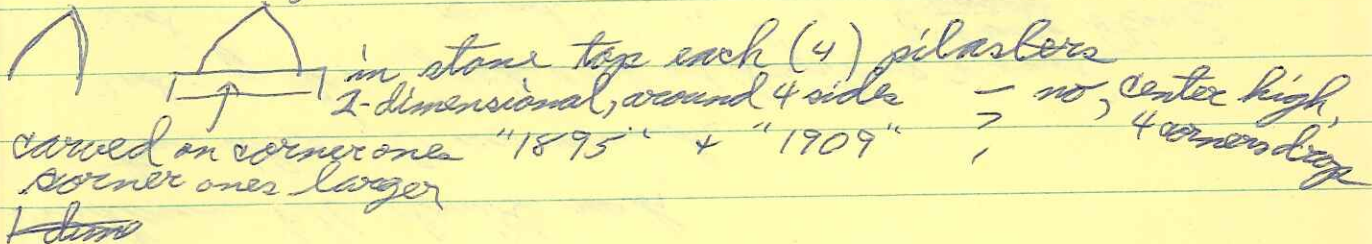 in stone top each (4) pilasters
2-dimensional, around 4 sides - no, center high,
4 corners drop
carved on corner ones "1895" + "1909"
corner ones larger